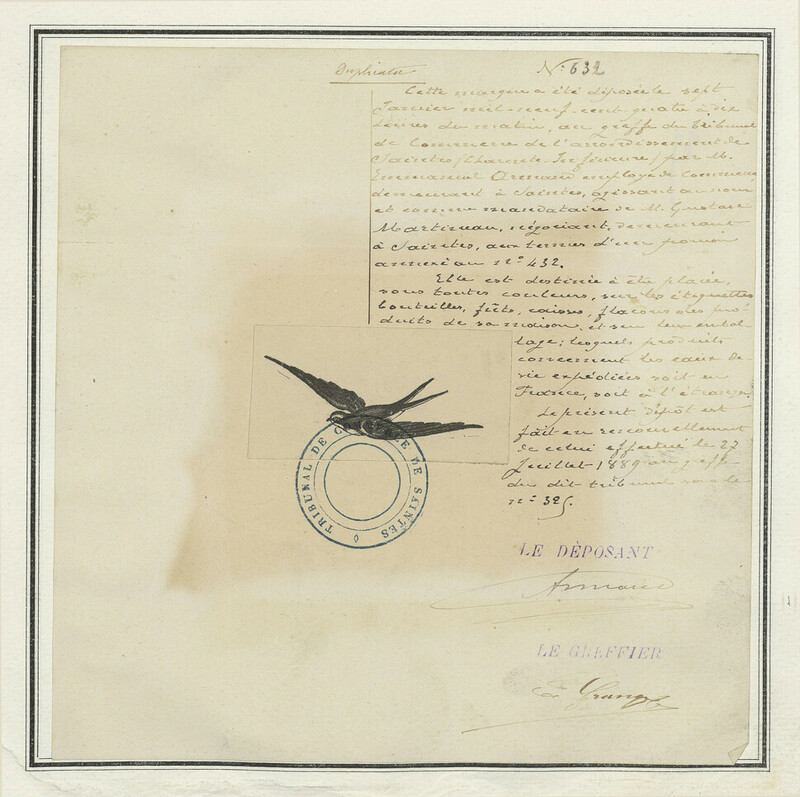 Duplicata
N° 632
Cette marque a été déposée le sept
Janvier mil-neuf-cent quatre à dix
heures du matin, au greffe du Tribunal
de Commerce de l'arrondissement de
Saintes (Charente Inférieure) par M.
Emmanuel Armand employé de Commerce
demeurant à Saintes, agissant au nom
et comme mandataire de M. Gustave
Martineau, négociant, demeurant
à Saintes, aux termes d'un pouvoir
annexé au n° 432.
Elle est destinée à être placée,
sous toutes couleurs, sur les étiquettes
bouteilles, fûts, caisses, flacons des pro-
duits de sa maison, et sur leur embal
lage; lesquels produits
concernent les eaux de
vie expédiées soit en
France, soit à l'étranger.
Le présent dépôt est
fait en renouvellement
de celui effectué le 27
Juillet 1889 au greffe
du dit tribunal sous le
n° 325.
TRIBUNAL DE COMMERCE DE SAINTES
LE DÉPOSANT
Armand
LE GREFFIER